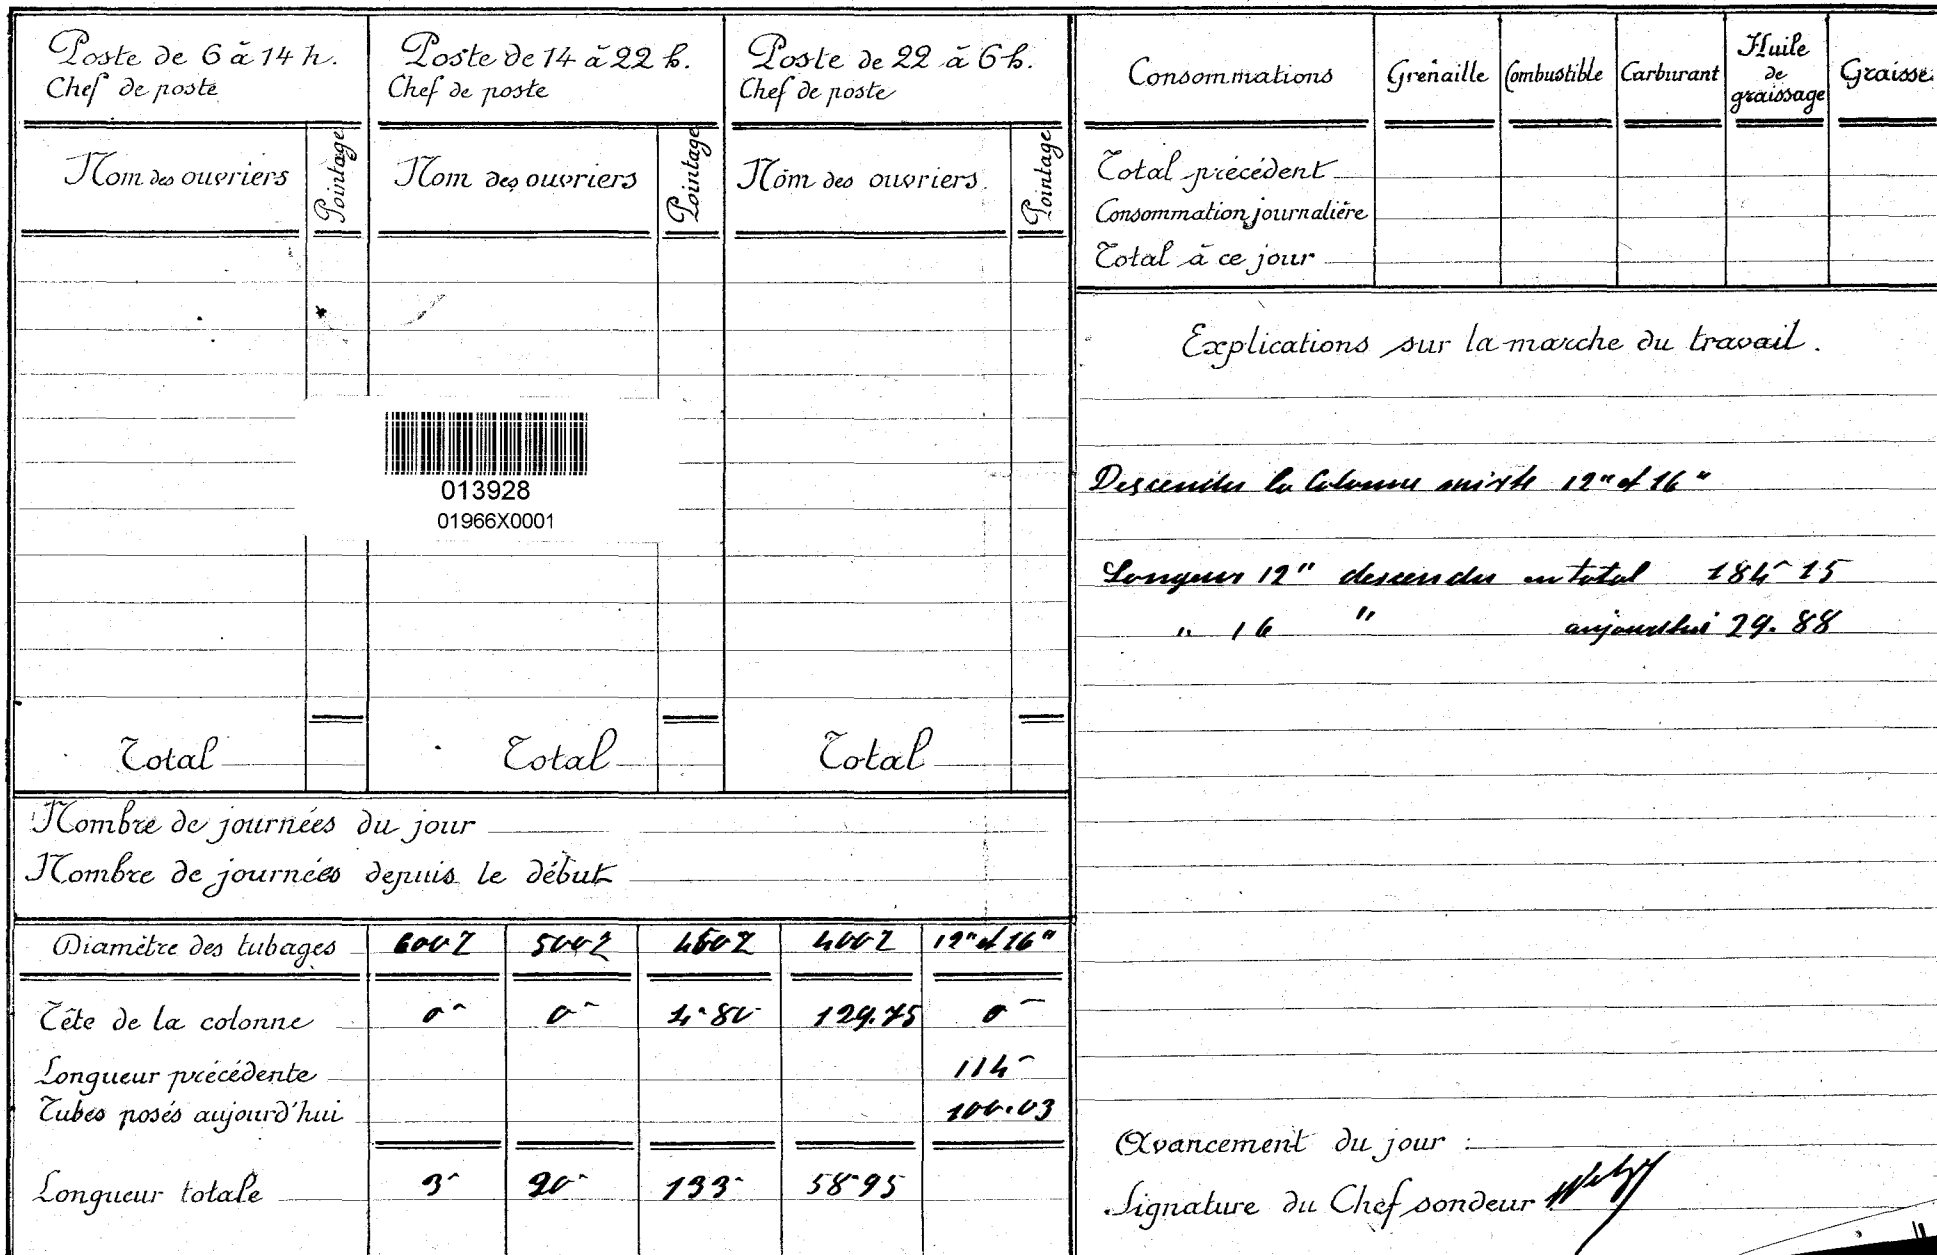 Poste de 6 à 14 h.
Chef de poste
Nom des ouvriers
Pointage
Poste de 14 à 22 h.
Chef de poste
Nom des ouvriers
Pointage
Poste de 22 à 6 h.
Chef de poste
Nom des ouvriers
Pointage
013928
01966X0001
Total
Total
Total
Nombre de journées du jour
Nombre de journées depuis le début
Diamètre des tubages 12" et 16"
Tête de la colonne 129.75
Longueur précédente 114
Tubes posés aujourd'hui 100.03
Longueur totale 3 20 133 58 95
Consommations Grenaille Combustible Carburant Huile de graissage Graisse
Total précédent
Consommation journalière
Total à ce jour
Explications sur la marche du travail.
la Colonne mixte 12" et 16"
Longueur 12" descendue en total 184 15
" 16 " aujourd'hui 29.88
Avancement du jour :
Signature du Chef sondeur